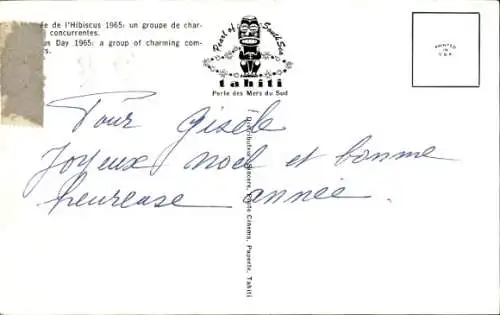 ée de l'Hibiscus 1965: un groupe de char-
concurrentes.
us Day 1965: a group of charming com-
rs.
Pearl of South Sea
tahiti
Perle des Mers du Sud
PRINTED
IN
Pour Gisèle
Joyeux noël et bonne
heureuse année.
Papeete, Tahiti